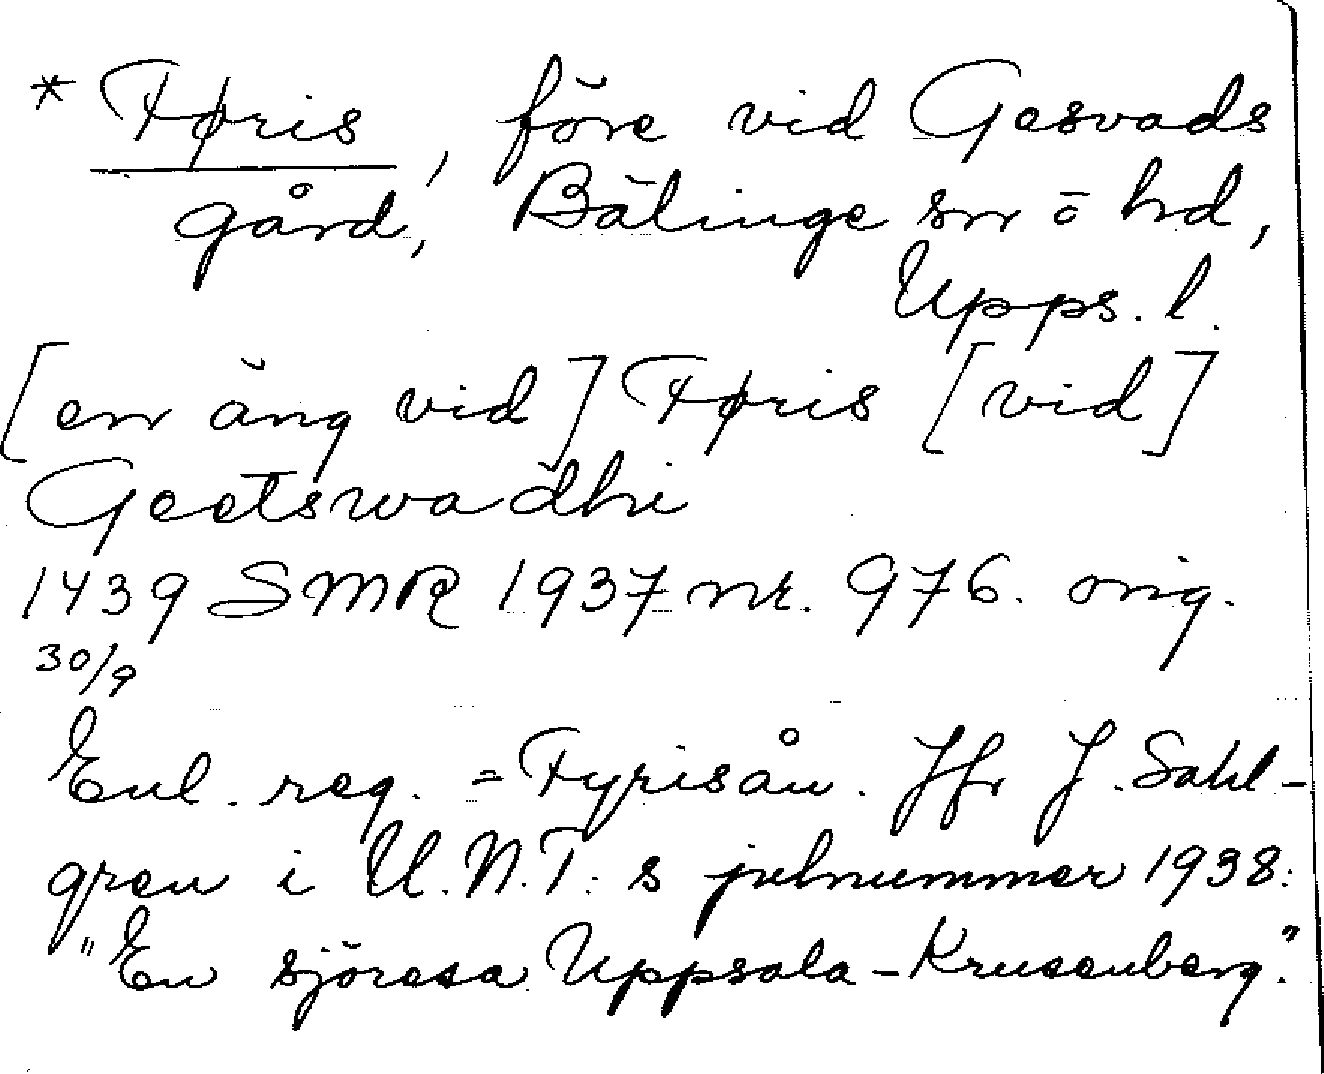 * Føris, före vid Gesvads
gård, Bälinge sn o hd,
Upps. l.
[en äng vid] Føris [vid]
Geetswadhi
1439 SMR 1937 nr. 976. orig.
30/9
Enl. reg. = Fyrisån. Jfr J. Sahl-
gren i U.N.T:s julnummer 1938:
"En sjöresa Uppsala-Krusenberg."